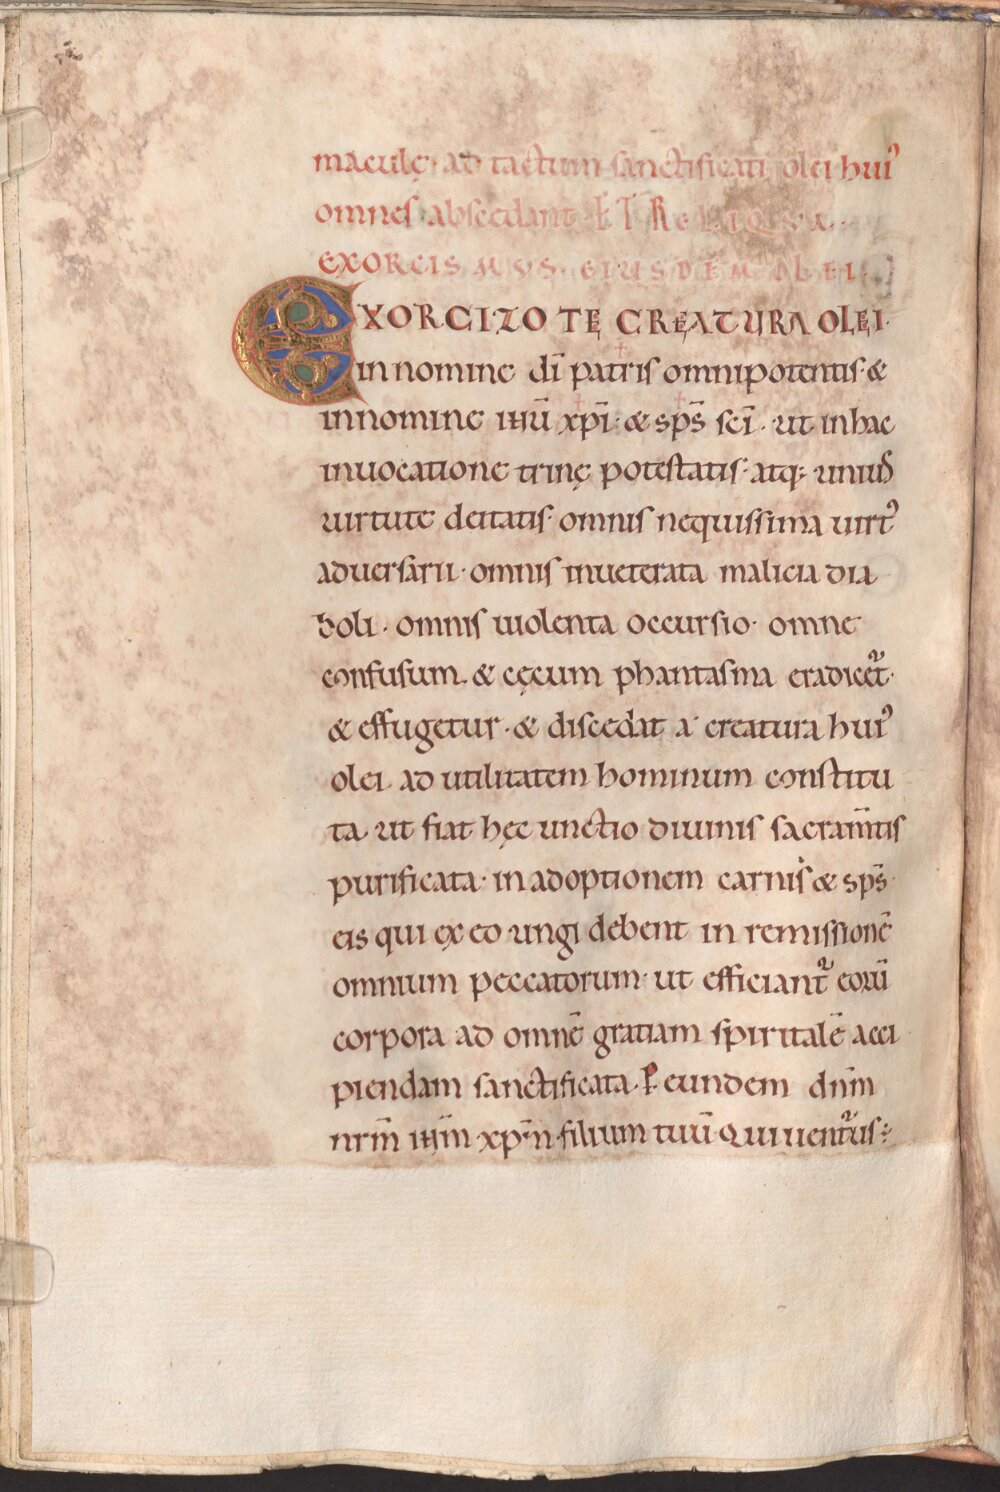 maculę· ad tactum sanctificati olei hui᾽
omnes· abscedant· ET RELIQUA·
EXORCISMUS· EIUSDEM OLEI·
EXORCIZO TE CREATURA OLEI·
in nomine dī patris omnipotentis· &
in nomine ihū xpī· & sp̄s scī· ut in hac
inuocatione trinę potestatis· atq· unius
uirtute deitatis· omnis nequissima uirt᾽
aduersarii· omnis inueterata malicia dia
boli· omnis uiolenta occursio· omne
confusum· & cęcum phantasma eradicet᷑·
& effugetur· & discedat a creatura hui᾽
olei· ad utilitatem hominum constitu
ta· ut fiat hęc unctio diuinis sacram̄tis
purificata· in adoptionem carnis & sp̄s·
eis qui ex eo ungi debent in remissionē
omnium peccatorum· ut efficiant᷑ eorū
corpora ad omnē gratiam spiritalē acci
piendam sanctificata· P eundem dn̄m
nr̄m ih̄m xp̄m filium tuū Qui uent᷑us·